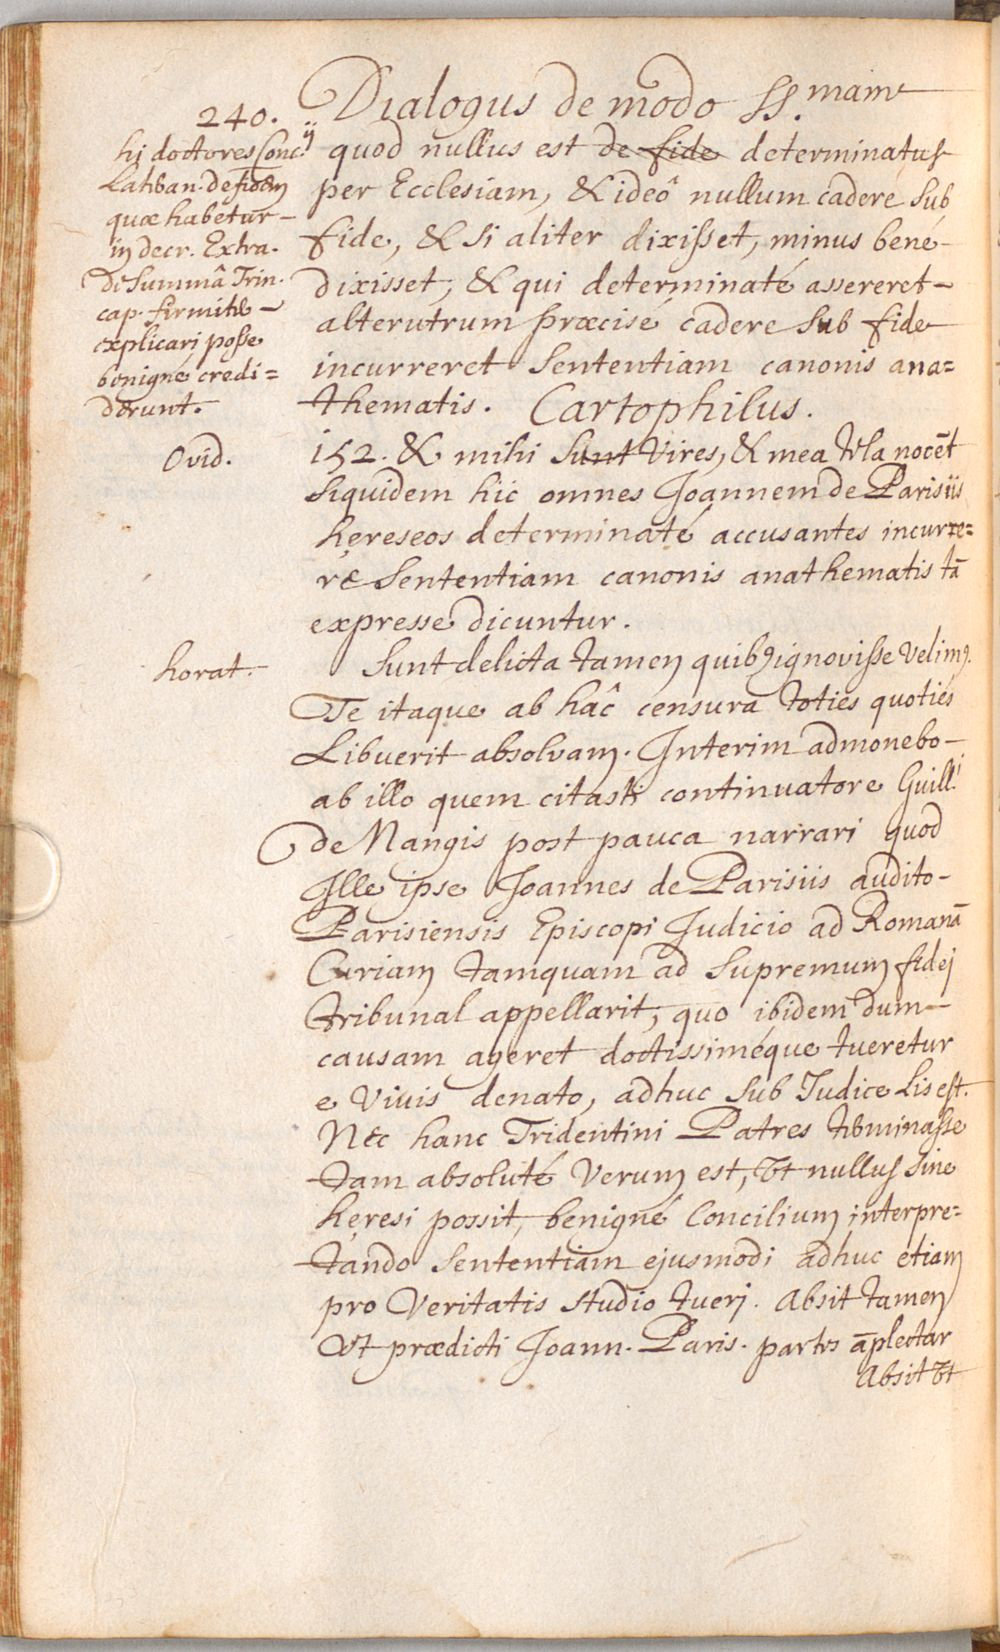 240.
Dialogus de modo SS.mam
hi doctores Concij
Latran. defidem
quæ habetur
in decr. Extra.
De Summâ Trin.
cap. firmiter
explicari posse
benigné credi=
derunt.
quod nullus est de fide determinatus
per Ecclesiam, & ideò nullum cadere sub
fide, & si aliter dixisset, minus bené
dixisset, & qui determinaté assereret
alterutrum præcisé cadere sub fide
incurreret Sententiam canonis ana=
thematis. Cartophilus.
Ovid.
152. & mihi sunt vires, & mea tela nocēt
Siquidem hic omnes Joannem de Parisiis
hęreseos determinaté accusantes incurre=
re Sententiam canonis anathematis tā
expresse dicuntur.
horat.
Sunt delicta tamen quibꝰ ignovisse velimꝰ.
Te itaque ab hâc censura toties quoties
Libuerit absolvam. Interim admonebo
ab illo quem citasti continuatore Guill.i
de Nangis post pauca narrari quod
Jlle ipse Joannes de Parisiis audito
Parisiensis Episcopi Judicio ad Romanā
Curiam tamquam ad Supremum fidej
tribunal appellarit, quo ibidem dum
causam ageret doctissiméque tueretur
e Vivis denato, adhuc sub Judice Lis est.
Nec hanc Tridentini Patres terminasse
tam absoluté Verum est, Vt nullus sine
hęresi possit, benigné Concilium interpre=
tando Sententiam ejusmodi adhuc etiam
pro Veritatis studio tueri. Absit tamen
Vt prædicti Joann. Paris. partes āplectar
Absit Vt